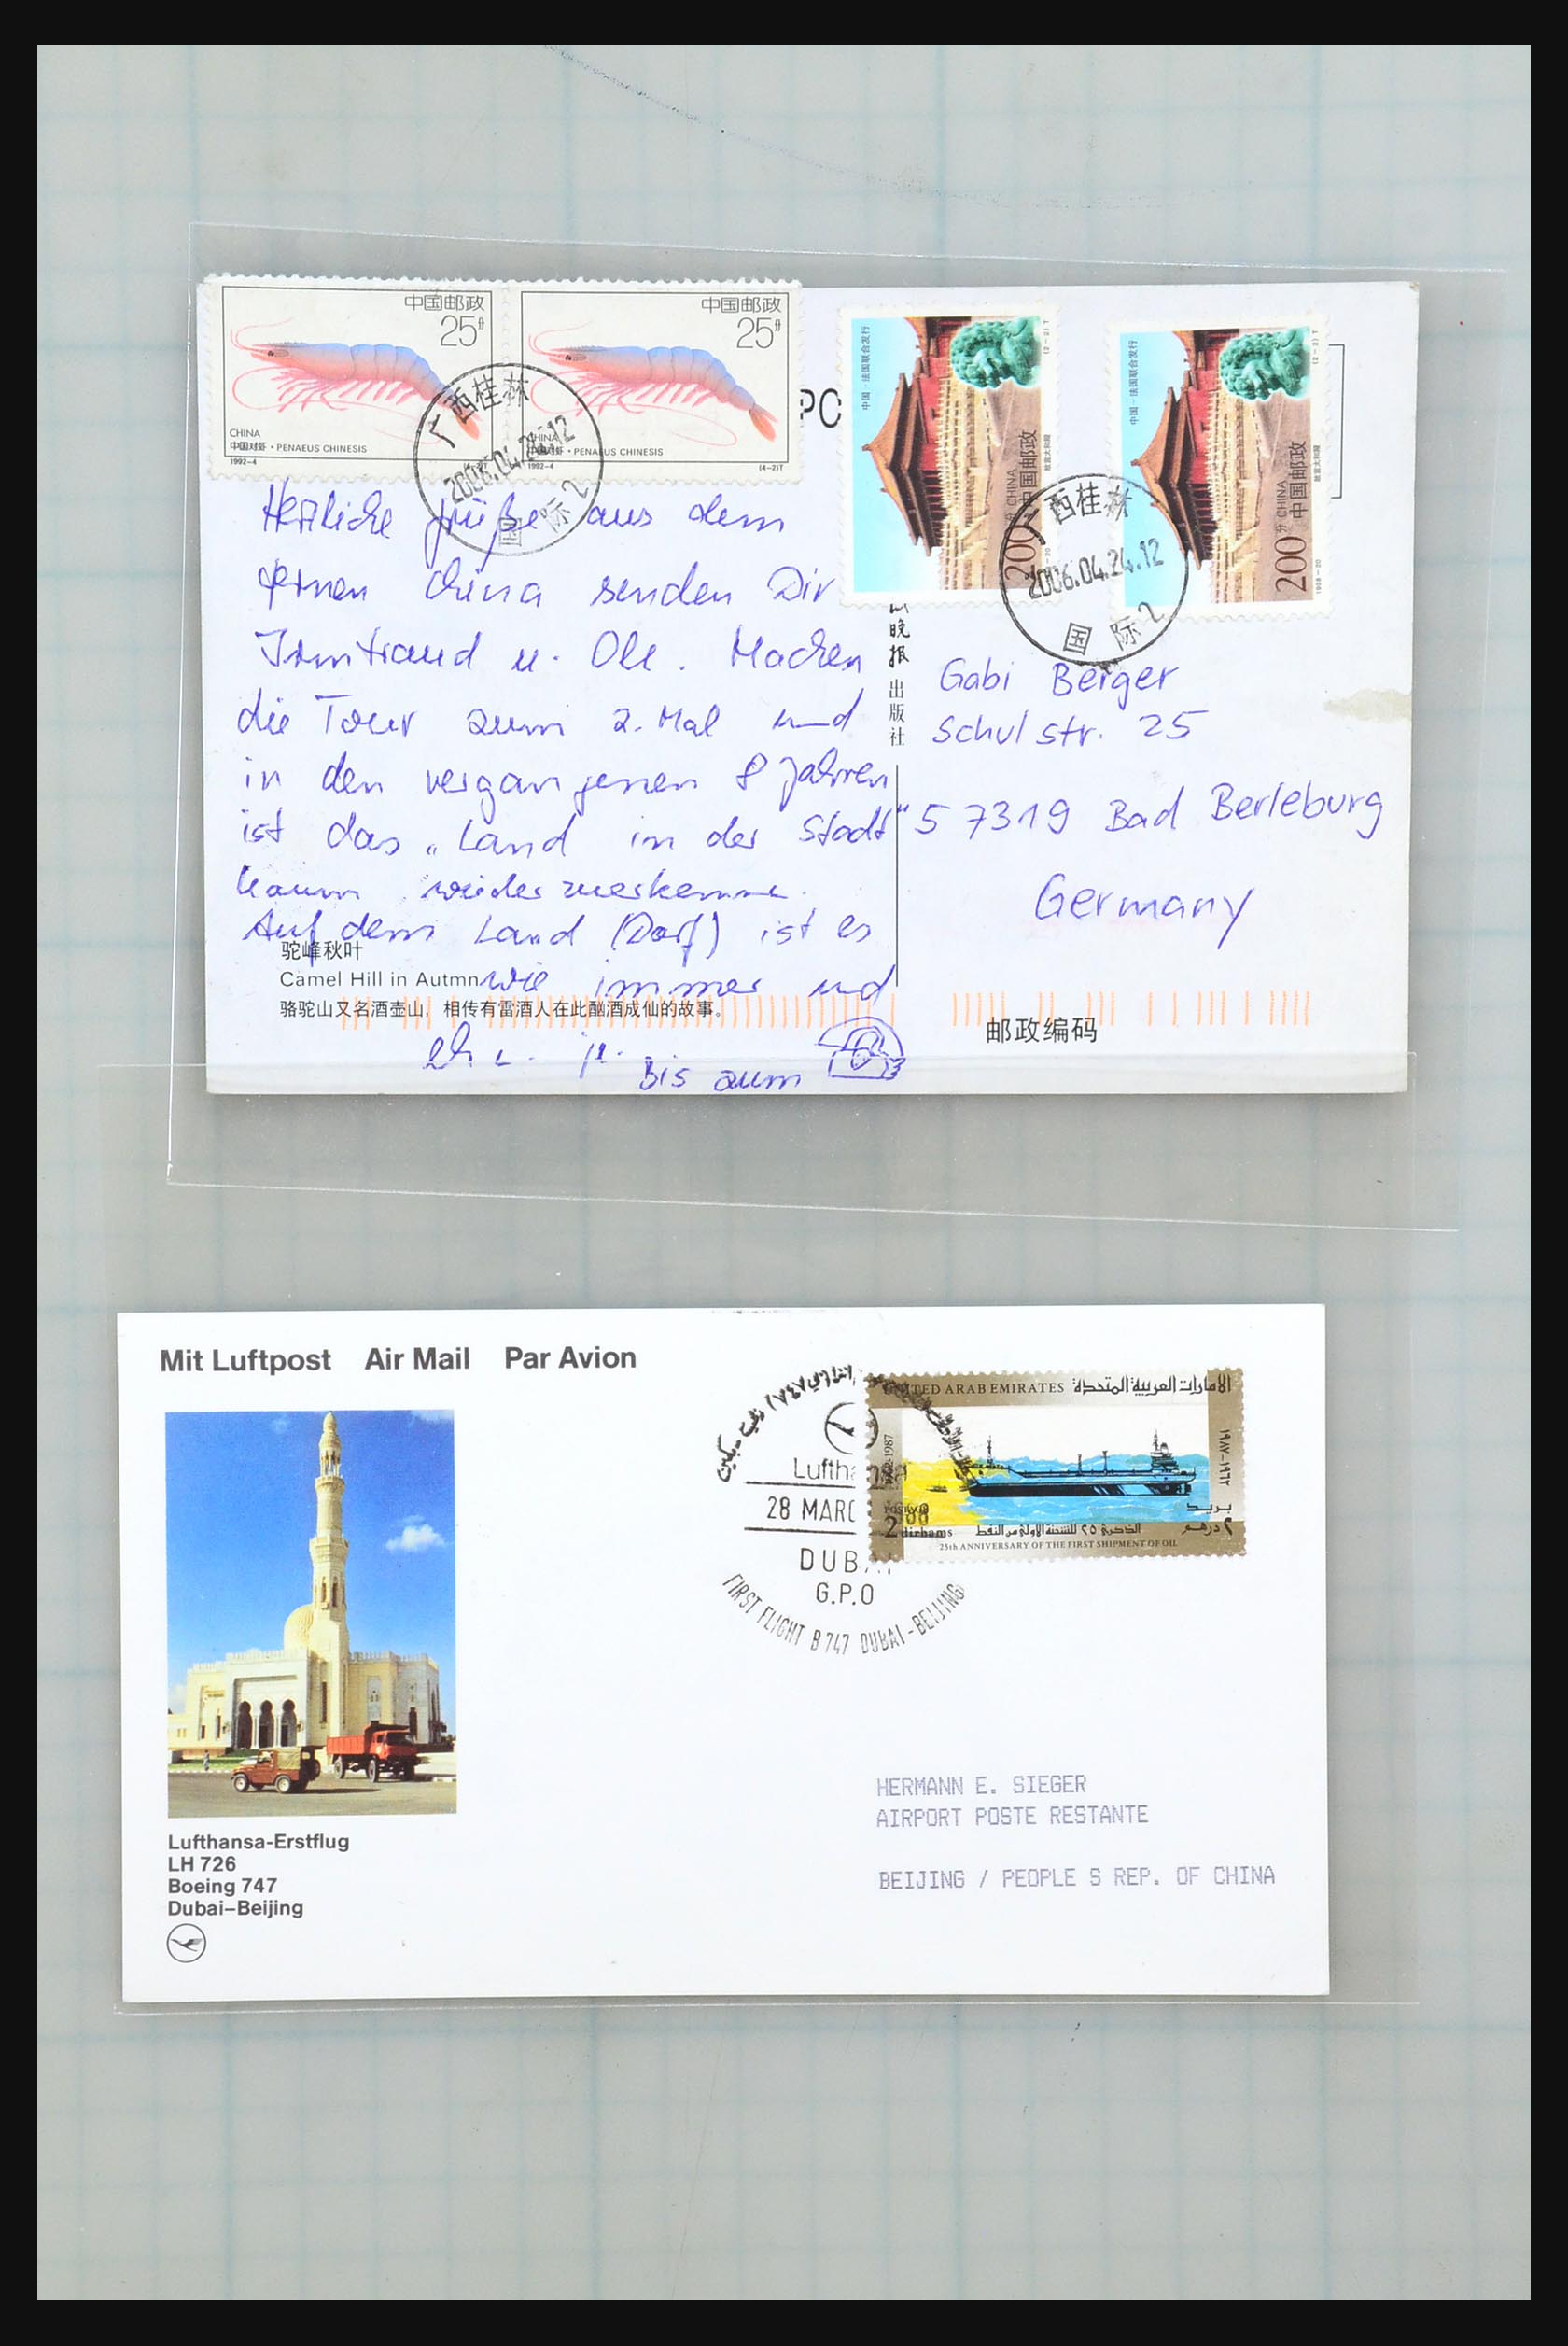 中国邮政
25分
CHINA
中国对虾 · PENAEUS CHINESIS
1992-4
(4-2)T
中国邮政
25分
CHINA
中国对虾 · PENAEUS CHINESIS
1992-4
(4-2)T
广西桂林
2006.04.24.12
国际2
PC
中国-法国联合发行
(2-2)T
200分 CHINA
中国邮政
故宫太和殿
1998-20
中国-法国联合发行
(2-2)T
200分 CHINA
中国邮政
故宫太和殿
1998-20
西桂林
2006.04.24.12
国际2
Herzliche Grüße aus dem
fernen China senden Dir
Irmtraud u. Ole. Machen
die Tour zum 2. Mal und
in den vergangenen 8 Jahren
ist das „Land in der Stadt"
kaum wiederzuerkennen.
Auf dem Land (Dorf) ist es
wie immer und
Bis zum
晚报出版社
Gabi Berger
Schulstr. 25
57319 Bad Berleburg
Germany
驼峰秋叶
Camel Hill in Autmn
骆驼山又名酒壶山，相传有雷酒人在此酗酒成仙的故事。
邮政编码
Mit Luftpost Air Mail Par Avion
UNITED ARAB EMIRATES الامارات العربية المتحدة
1987
١٩٨٧-١٩٦٢
بريد
٢ درهم
2 dirhams
الذكرى ٢٥ للشحنة الاولى من النفط
25th ANNIVERSARY OF THE FIRST SHIPMENT OF OIL
Lufthansa
28 MARC
DUBAI
G.P.O
FIRST FLIGHT B 747 DUBAI-BEIJING
Lufthansa-Erstflug
LH 726
Boeing 747
Dubai–Beijing
HERMANN E. SIEGER
AIRPORT POSTE RESTANTE
BEIJING / PEOPLE S REP. OF CHINA